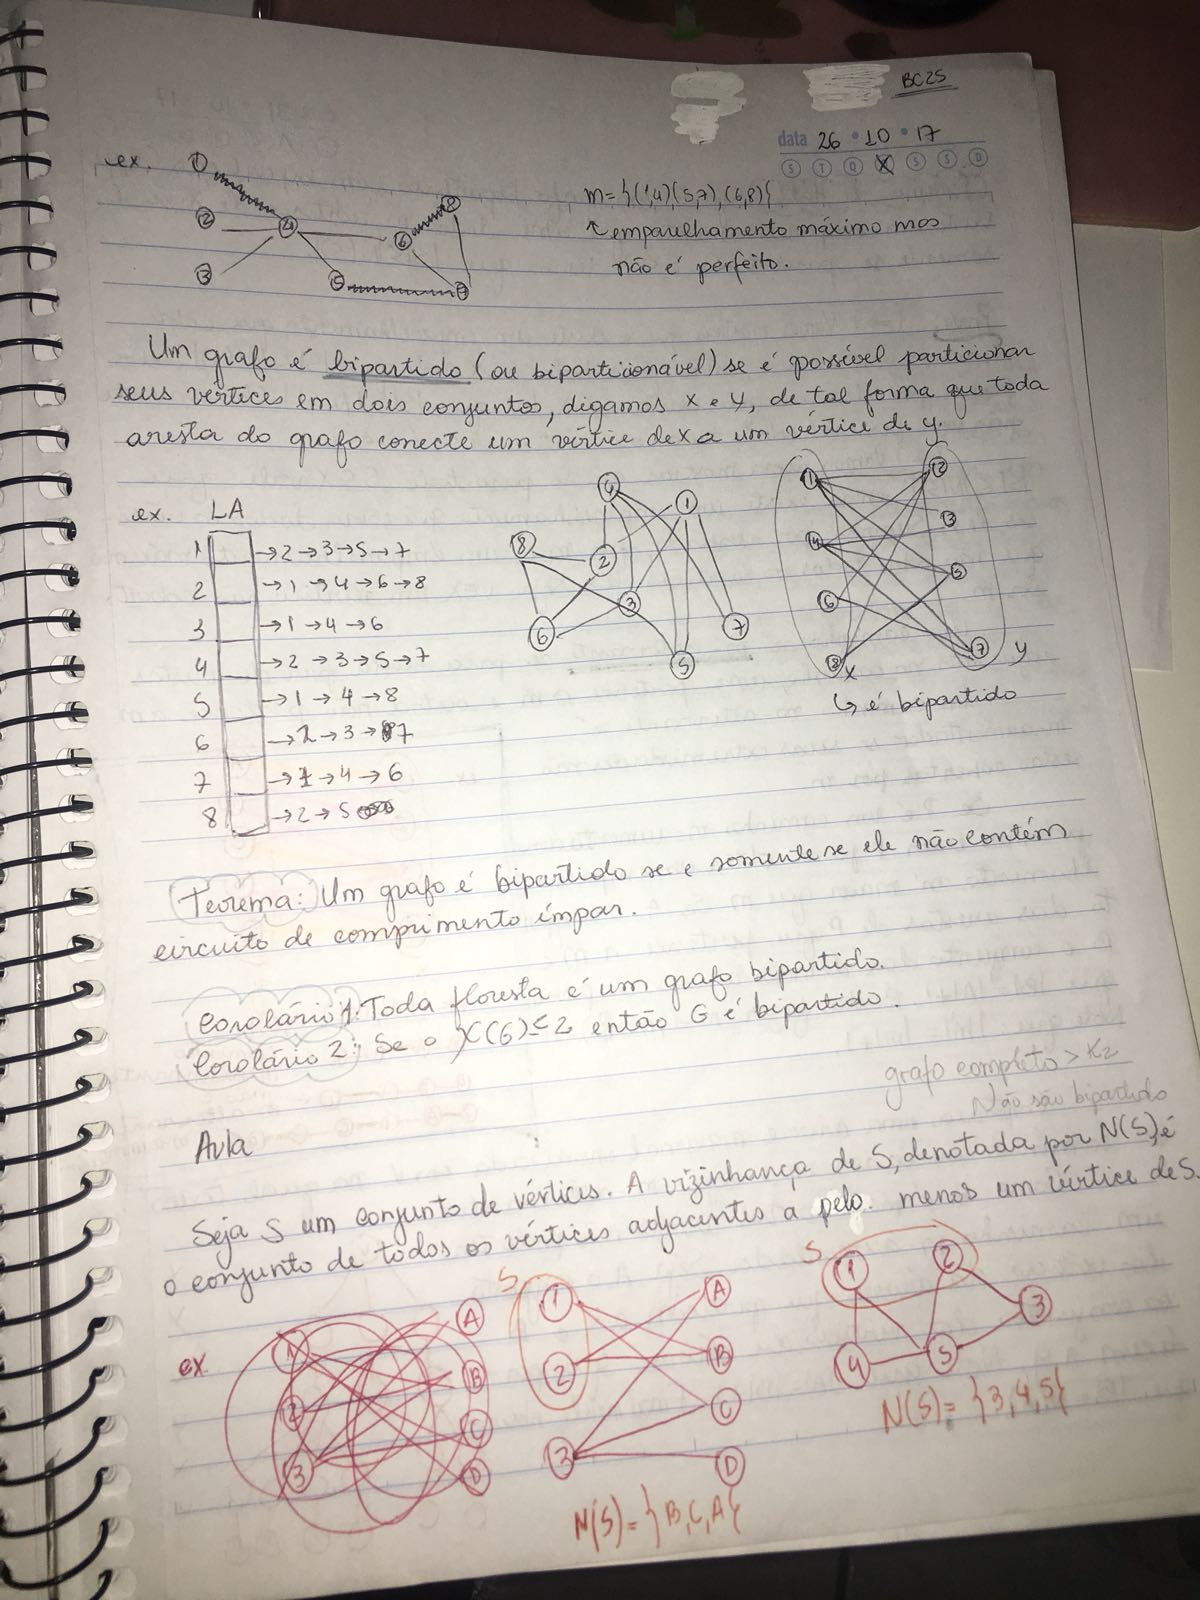 BC25
data 26 • 10 • 17
S T Q X S S D
ex.
1
2
3
4
5
6
7
8
m={(1,4)(5,7),(6,8)}
↑ emparelhamento máximo mas
não é perfeito.
Um grafo é bipartido (ou biparticionável) se é possível particionar
seus vértices em dois conjuntos, digamos x e y, de tal forma que toda
aresta do grafo conecte um vértice de x a um vértice de y.
ex. LA
1 →2→3→5→7
2 →1→4→6→8
3 →1→4→6
4 →2→3→5→7
5 →1→4→8
6 →2→3→7
7 →1→4→6
8 →2→5
4 1
8 2
3
6 7
5
1 2
4 3
6 5
8 7
x y
↳ é bipartido
Teorema: Um grafo é bipartido se e somente se ele não contém
circuito de comprimento ímpar.
Corolário 1: Toda floresta é um grafo bipartido.
Corolário 2: Se o X(G)≤2 então G é bipartido.
grafo completo > K2
Não são bipartido
Aula
Seja S um conjunto de vértices. A vizinhança de S, denotada por N(S), é
o conjunto de todos os vértices adjacentes a pelo. menos um vértice de S.
ex.
1 A
2 B
3 C
D
S
1 A
2 B
3 C
D
N(S)= {B,C,A}
S
1 2
3
4 5
N(S)= {3,4,5}